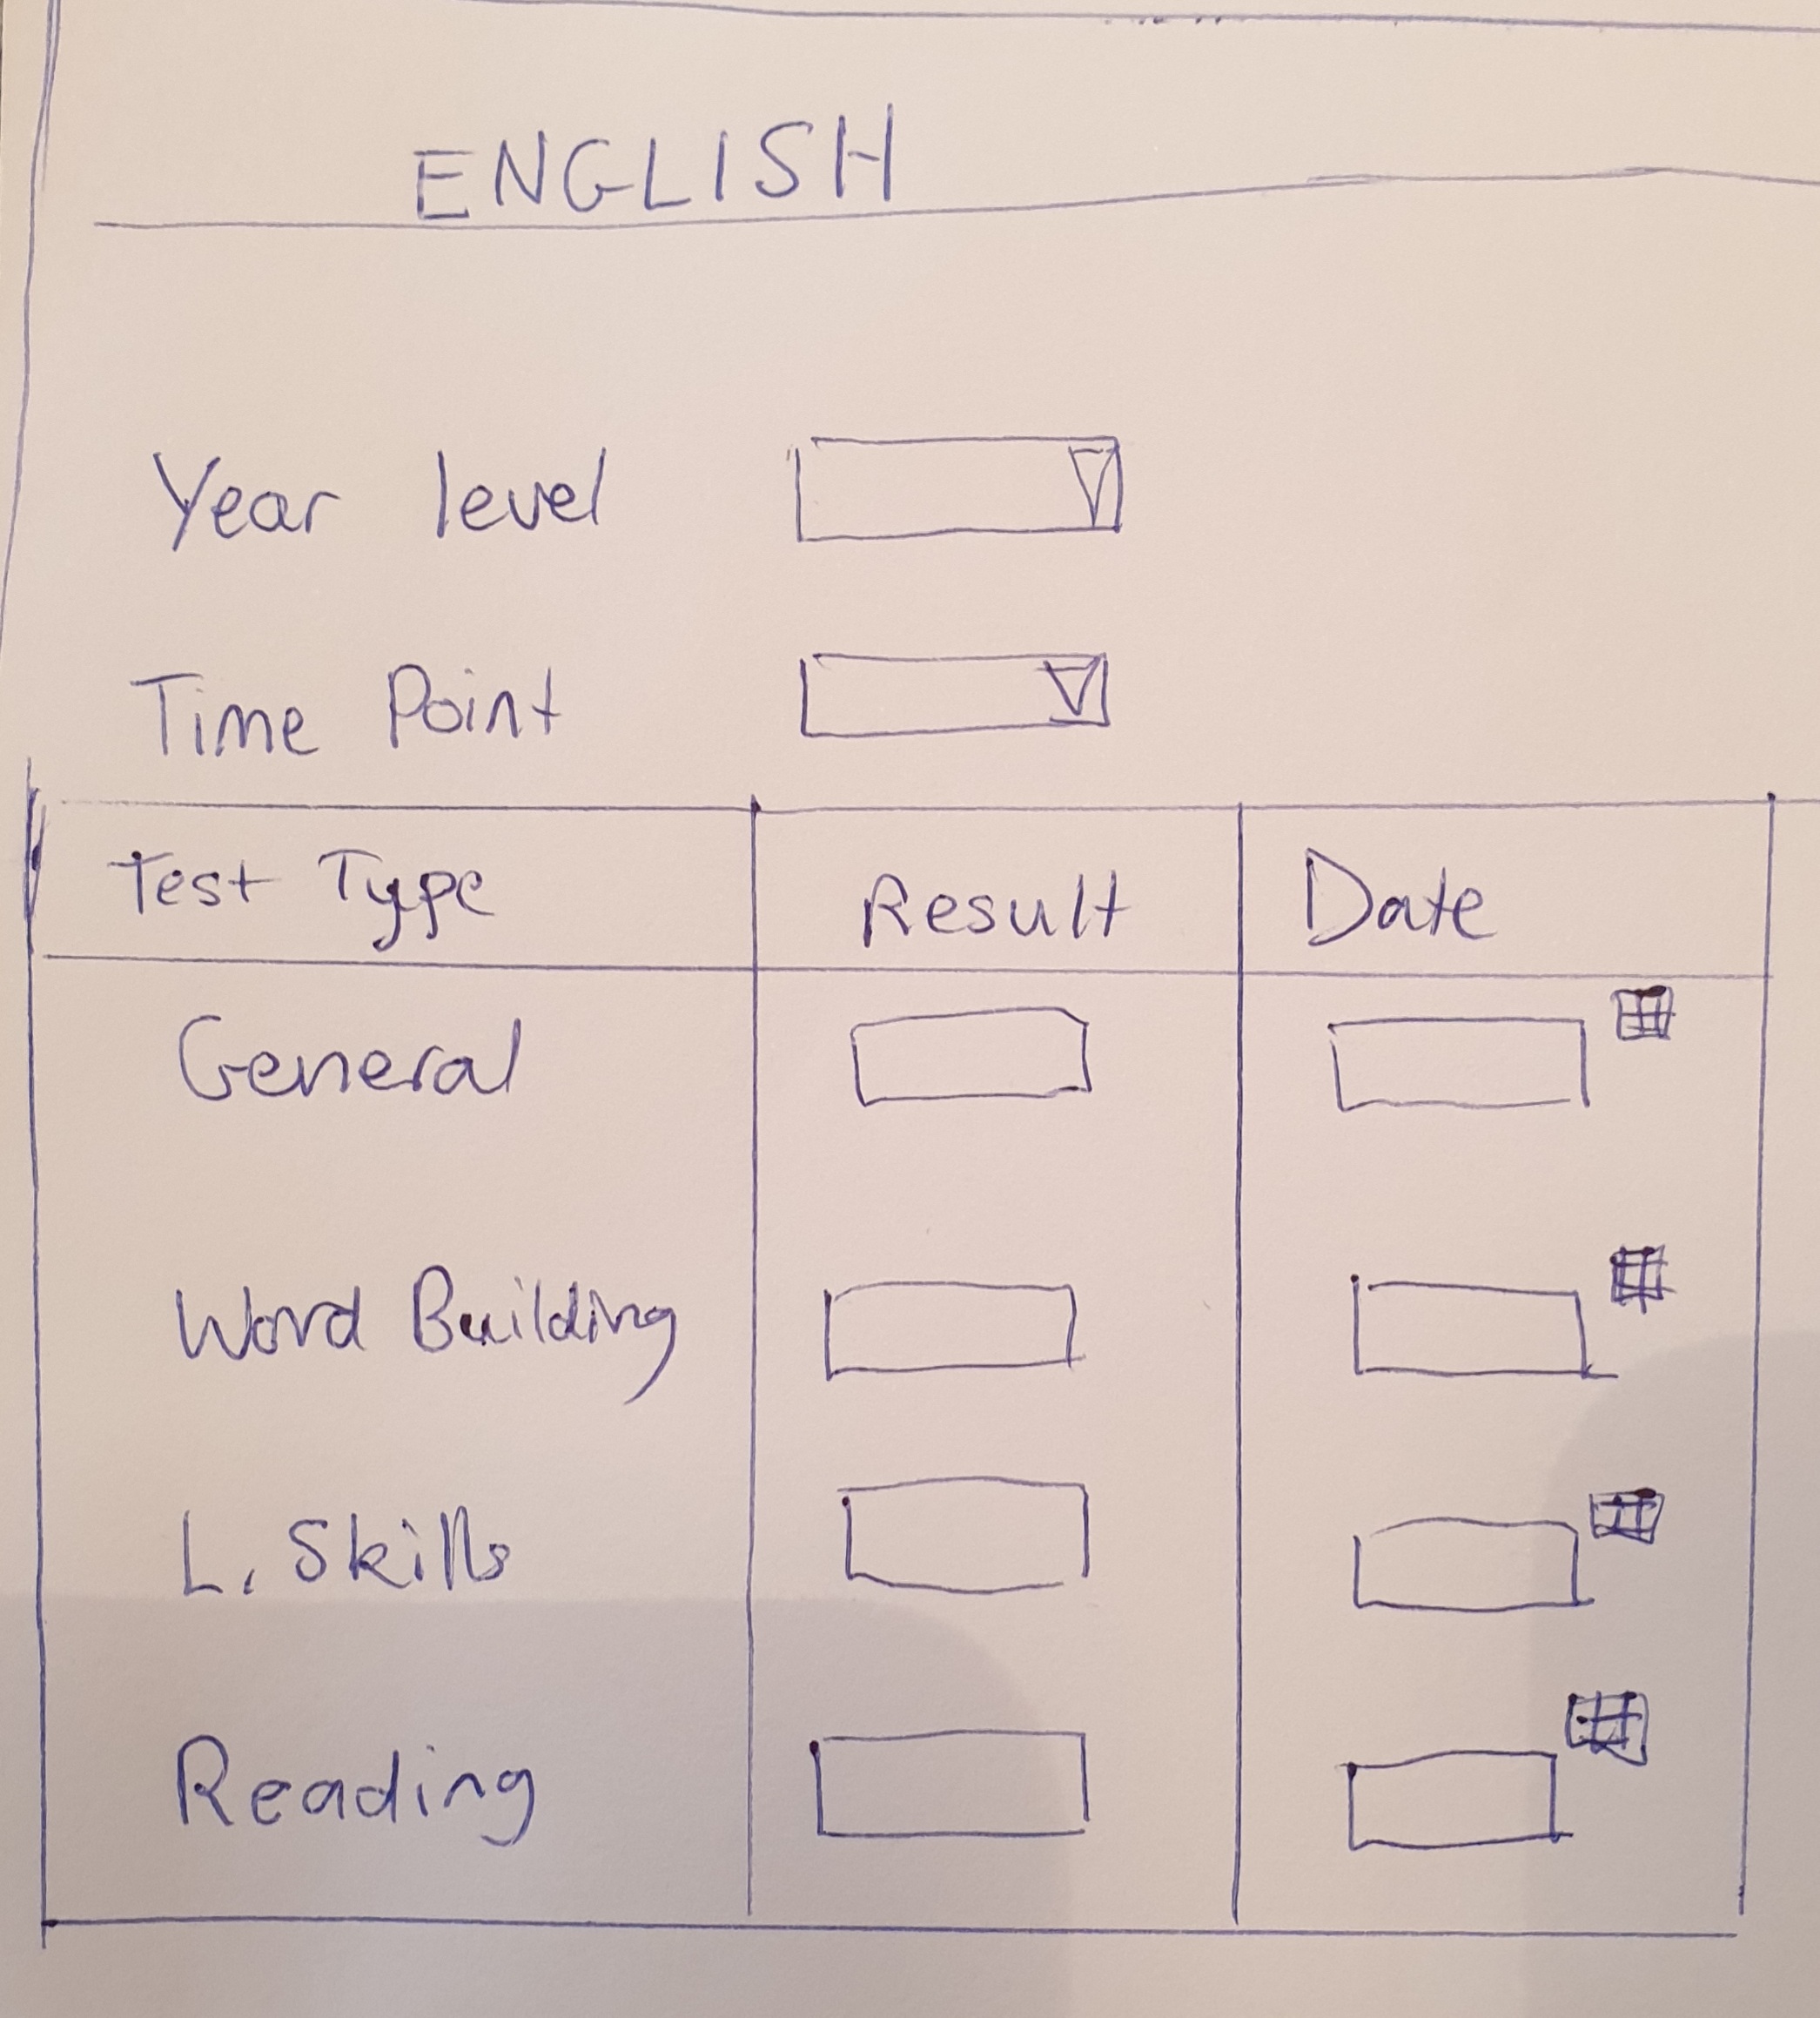 ENGLISH
Year level
Time Point
Test Type Result Date
General
Word Building
L. Skills
Reading